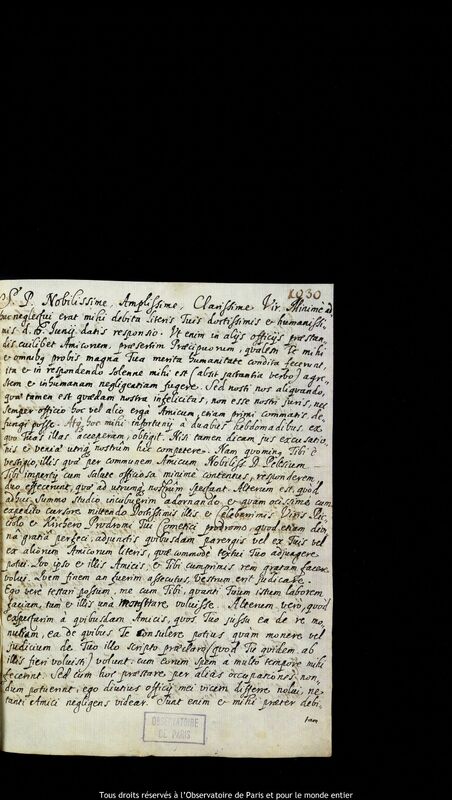 1030
S. P. Nobilissime, Amplissime, Clarissime Vir. Minime ad
huc neglectui erat mihi debita literis Tuis doctissimis et humanissi-
mis d. 6 Junii datis responsio. Ut enim in alijs officijs præstan-
dis cuilibet Amicorum, præsertim Præcipuorum, qualem Te mihi
et omnibus probis magna Tua merita humanitate condita fecerunt,
ita et in respondendo solenne mihi est (absit jactantia verbo) agre-
stem et inhumanam negligentiam fugere. Sed nosti nos aliquando,
quæ tamen est quædam nostra infelicitas, non esse nostri juris, nec
semper officio hoc vel alio erga Amicum, etiam primi commatis de-
fungi posse. Atq; hoc mihi infortunij a duabus hebdomadibus, ex
quo Tuas illas acceperam, obtigit. Nisi tamen dicam jus excusatio-
nis et veniæ utriq; nostrum hic competere. Nam quominus Tibi è
vestigio, illis quæ per communem Amicum Nobiliss. D.
Tibi impertij cum Salute officiosa minime contentus, responderem,
duo effecerunt, quæ ad utrumq; nostrum spectant. Alterum est, quod
adhuc summo studio incubuerim adornando et quam ocissime cum
expedito cursore mittendo Doctissimis illis et Celeberrimis Viris Ric-
ciolo et Kirchero Prodromi Tui Cometici prodromo, quod etiam
nâ gratiâ perfeci, adjunctis quibusdam parergis vel ex Tuis vel
ex aliorum Amicorum literis, quæ commode textui Tuo adjungere
potui. Quo ipso et illis Amicis, et Tibi cumprimis rem gratam facere
volui. Quem finem an fuerim assecutus, Vestrum erit judicare.
Ego vere testari possum, me cum Tibi, quanti Tuum istum laborem
faciam, tum et illis una monstrare voluisse. Alterum vero, quod
expectarim a quibusdam Amicis, quos Tuo jussu ea de re mo-
nui etiam, ea de quibus Te consulere potius quam monere vel
judicium de Tuo illo scripto præclaro (quod Tu quidem ab
illis fieri voluisti) volunt, cum eorum spem a multo tempore mihi
fecerint. Sed cum hoc præstare per alias occupationes non-
dum potuerint, ego diutius officij mei vicem differre nolui, ne
tanti Amici negligens videar. Sunt enim et mihi præter debi-
tam
OBSERVATOIRE
DE PARIS
Tous droits réservés à l'Observatoire de Paris et pour le monde entier